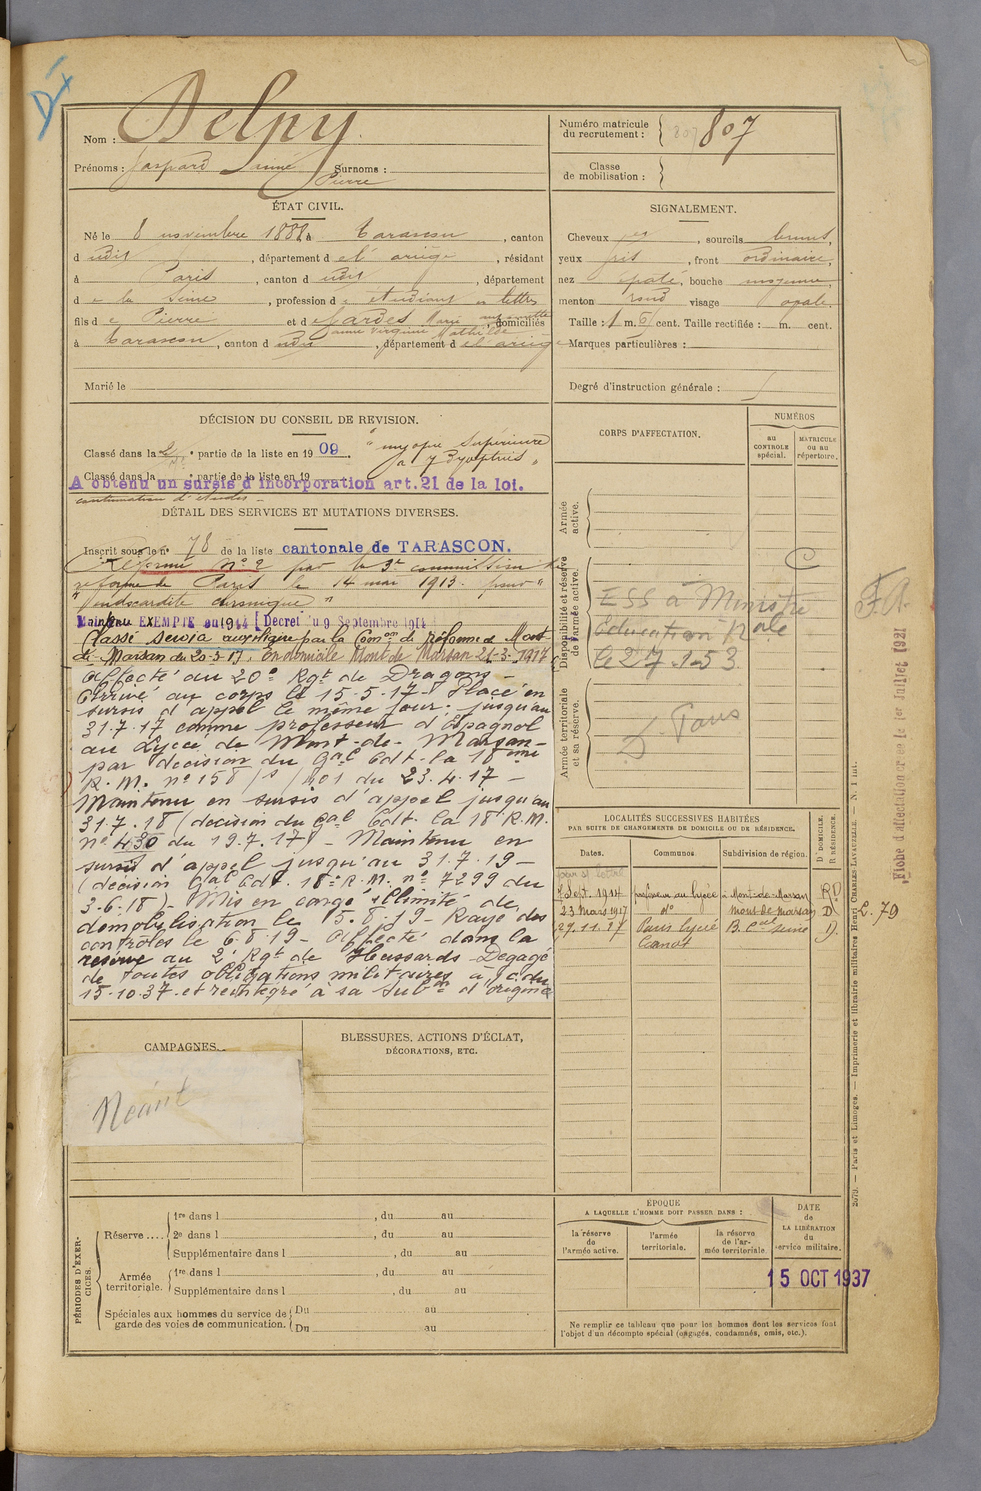 Nom : Delpy
Prénoms : Gaspard Surnoms :
Pierre
Numéro matricule
du recrutement : 807 807
Classe
de mobilisation :
ÉTAT CIVIL.
Né le 8 novembre 1888 à Tarascon, canton
d udit, département de l'ariège, résidant
à Paris, canton d udit, département
d e la Seine, profession d' étudiant ès lettres
fils de Pierre et de Jardés Marie Antoinette, domiciliés
anne Virginie Mathilde
à Tarascon, canton d udit, département de l'ariège
Marié le
SIGNALEMENT.
Cheveux , sourcils bruns,
yeux gris, front ordinaire,
nez épaté, bouche moyenne,
menton rond visage ovale.
Taille : 1 m. 61 cent. Taille rectifiée : m. cent.
Marques particulières :
Degré d'instruction générale : 5
DÉCISION DU CONSEIL DE REVISION.
Classé dans la 2 partie de la liste en 1909. "myopie supérieure
à 7 dyoptries"
Classé dans la partie de la liste en 19
A obtenu un sursis d'incorporation art. 21 de la loi.
continuation d'études -
DÉTAIL DES SERVICES ET MUTATIONS DIVERSES.
Inscrit sous le n° 78 de la liste cantonale de TARASCON.
Réformé n° 2 par la 3e commission de
réforme de Paris le 14 mai 1913. pour "
"endocardite chronique"
Maintenu EXEMPTÉ en 1914 [Décret du 9 Septembre 1914
Classé service auxiliaire par la Comon de réforme de Mont-
de-Marsan du 20-3-17. En domicile Mont de Marsan 21-3-1917
Affecté au 20e Rgt de Dragons -
Arrivé au corps le 15-5-17 - Placé en
sursis d'appel le même jour : jusqu'au
31.7.17 comme professeur d'Espagnol
au Lycée de Mont-de-Marsan -
par décision du Gal Cdt. la 18ème
R.M. n° 158/s/401 du 23.4.17 -
Maintenu en sursis d'appel jusqu'au
31.7.18 (décision du Gal Cdt. la 18 R.M.
n° 430 du 19.7.17) - Maintenu en
sursis d'appel jusqu'au 31.7.19 -
(décision Gal Cdt. 18e R.M. n° 7299 du
3-6-18) - Mis en congé illimité de
démobilisation le 5.8.19 - Rayé des
contrôles le 6.8.19 - Affecté dans la
réserve au 2e Rgt de Hussards - Dégagé
de toutes obligations militaires à /c. du
15.10.37. et réintégré à sa Subon d'origine
CORPS D'AFFECTATION.
NUMÉROS
au
CONTROLE
spécial.
MATRICULE
ou au
répertoire.
Armée
active.
Disponibilité et réserve
de l'armée active.
C
ESS à Ministre
éducation Nale
le 27.1.53.
Armée territoriale
et sa réserve.
D. Paris
F.A.
"Fiche d'affectation créée le 1er Juillet 1921
L. 79
LOCALITÉS SUCCESSIVES HABITÉES
PAR SUITE DE CHANGEMENTS DE DOMICILE OU DE RÉSIDENCE.
D. DOMICILE.
R. RÉSIDENCE.
Dates. Communes. Subdivision de région.
7 Sept. 1914 professeur au lycée à Mont-de-Marsan R.
23 Mars 1917 do Mont-de-Marsan D
29.11.27 Paris lycée B. Cal Seine D.
Carnot
CAMPAGNES.
Néant
BLESSURES, ACTIONS D'ÉCLAT,
DÉCORATIONS, ETC.
PÉRIODES D'EXER-
CICES.
Réserve....
1re dans l , du au
2e dans l , du au
Supplémentaire dans l , du au
Armée
territoriale.
1re dans l , du au
Supplémentaire dans l , du au
Spéciales aux hommes du service de
garde des voies de communication.
Du au
Du au
EPOQUE
A LAQUELLE L'HOMME DOIT PASSER DANS :
la réserve
de
l'armée active.
l'armée
territoriale.
la réserve
de l'ar-
mée territoriale.
DATE
de
LA LIBÉRATION
du
service militaire.
15 OCT 1937
Ne remplir ce tableau que pour les hommes dont les services font
l'objet d'un décompte spécial (engagés, condamnés, omis, etc.).
2579. — Paris et Limoges. — Imprimerie et librairie militaires Henri CHARLES-LAVAUZELLE. — N. 1 int.